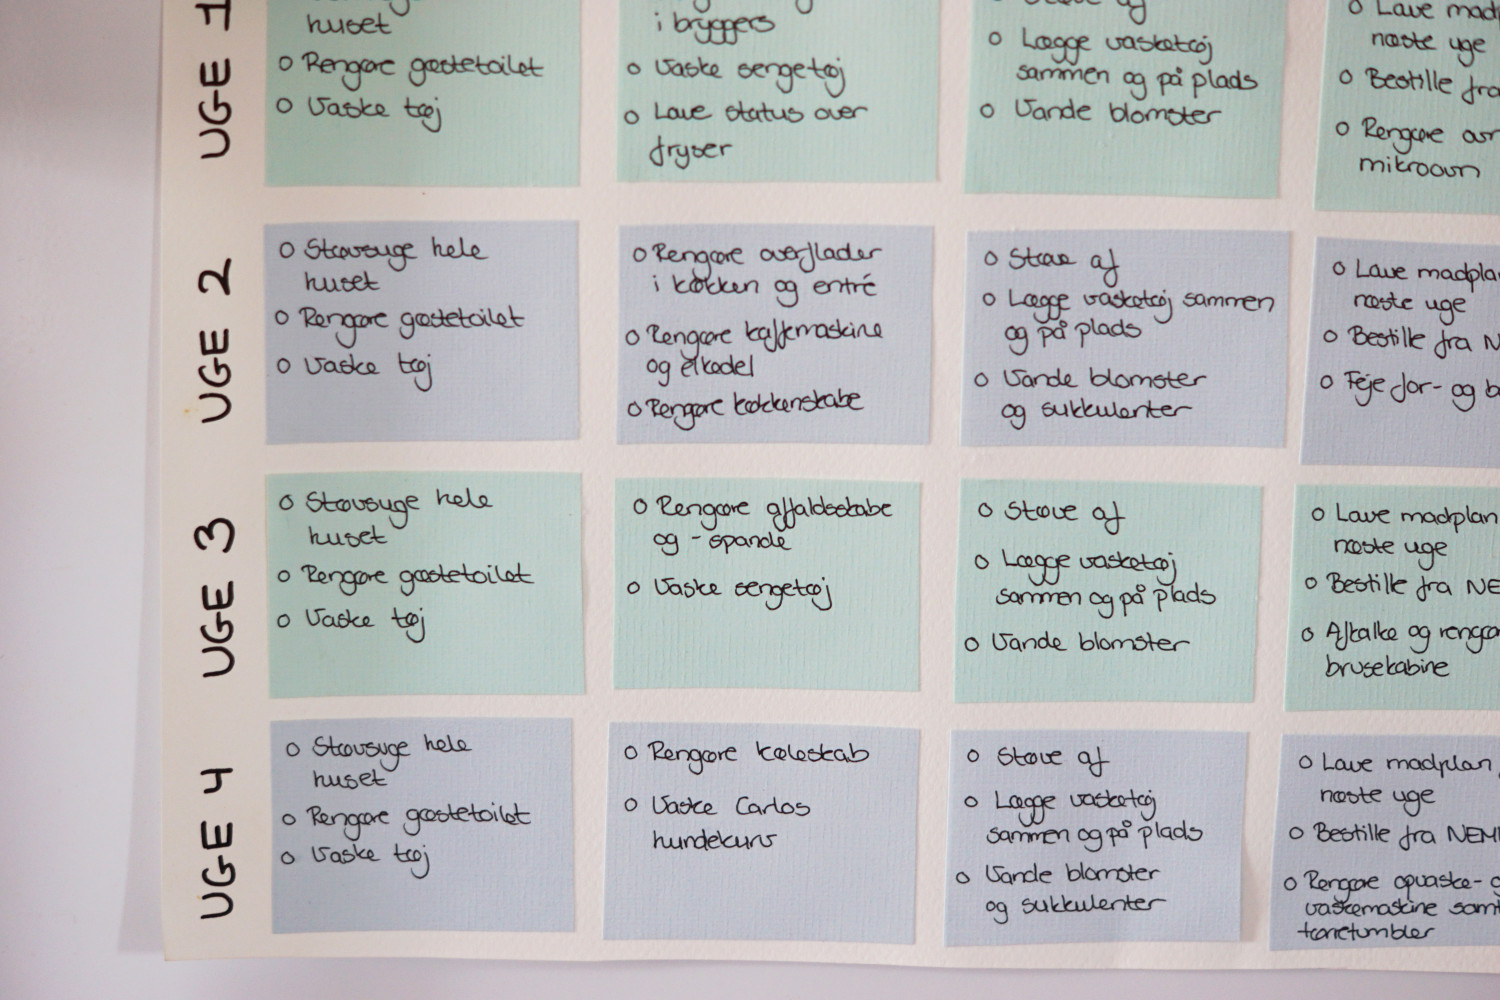 UGE 1
huset
○ Rengøre gæstetoilet
○ Vaske tøj
i bryggers
○ Vaske sengetøj
○ Lave status over
fryser
af
○ Lægge vasketøj
sammen og på plads
○ Vande blomster
○ Lave mad
næste uge
○ Bestille fra
○ Rengøre
mikroovn
UGE 2
○ Støvsuge hele
huset
○ Rengøre gæstetoilet
○ Vaske tøj
○ Rengøre overflader
i køkken og entré
○ Rengøre kaffemaskine
og elkedel
○ Rengøre køkkenskabe
○ Støve af
○ Lægge vasketøj sammen
og på plads
○ Vande blomster
og sukkulenter
○ Lave madplan
næste uge
○ Bestille fra N
○ Feje for- og b
UGE 3
○ Støvsuge hele
huset
○ Rengøre gæstetoilet
○ Vaske tøj
○ Rengøre affaldsskabe
og -spande
○ Vaske sengetøj
○ Støve af
○ Lægge vasketøj
sammen og på plads
○ Vande blomster
○ Lave madplan
næste uge
○ Bestille fra NE
○ Afkalke og rengø
brusekabine
UGE 4
○ Støvsuge hele
huset
○ Rengøre gæstetoilet
○ Vaske tøj
○ Rengøre køleskab
○ Vaske Carlos
hundekurv
○ Støve af
○ Lægge vasketøj
sammen og på plads
○ Vande blomster
og sukkulenter
○ Lave madplan
næste uge
○ Bestille fra NEM
○ Rengøre opvaske- o
vaskemaskine samt
tørretumbler